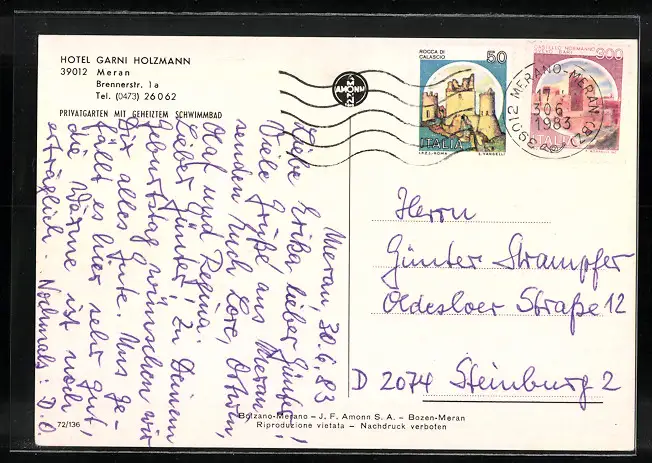 HOTEL GARNI HOLZMANN
39012 Meran
Brennerstr. 1a
Tel. (0473) 26062
PRIVATGARTEN MIT GEHEIZTEM SCHWIMMBAD
AMONN
ROCCA DI
CALASCIO
50
ITALIA
I.P.Z.S.-ROMA
E. VANGELLI
300
39012 MERANO-MERAN (BZ)
17
30 6
1983
Meran, 30.6.83
Liebe Erika, lieber Günter!
Viele Grüße aus Meran
senden Euch Lore, Ottwin,
Olaf und Regina.
Lieber Günter, zu Deinem
Geburtstag wünschen wir
Dir alles Gute. Uns ge-
fällt es hier sehr gut,
die Wärme ist noch
erträglich. Nochmals: D.O
Herrn
Günter Strampfer
Oldesloer Straße 12
D 2074 Steinburg 2
72/136
Bolzano-Merano – J. F. Amonn S. A. – Bozen-Meran
Riproduzione vietata – Nachdruck verboten